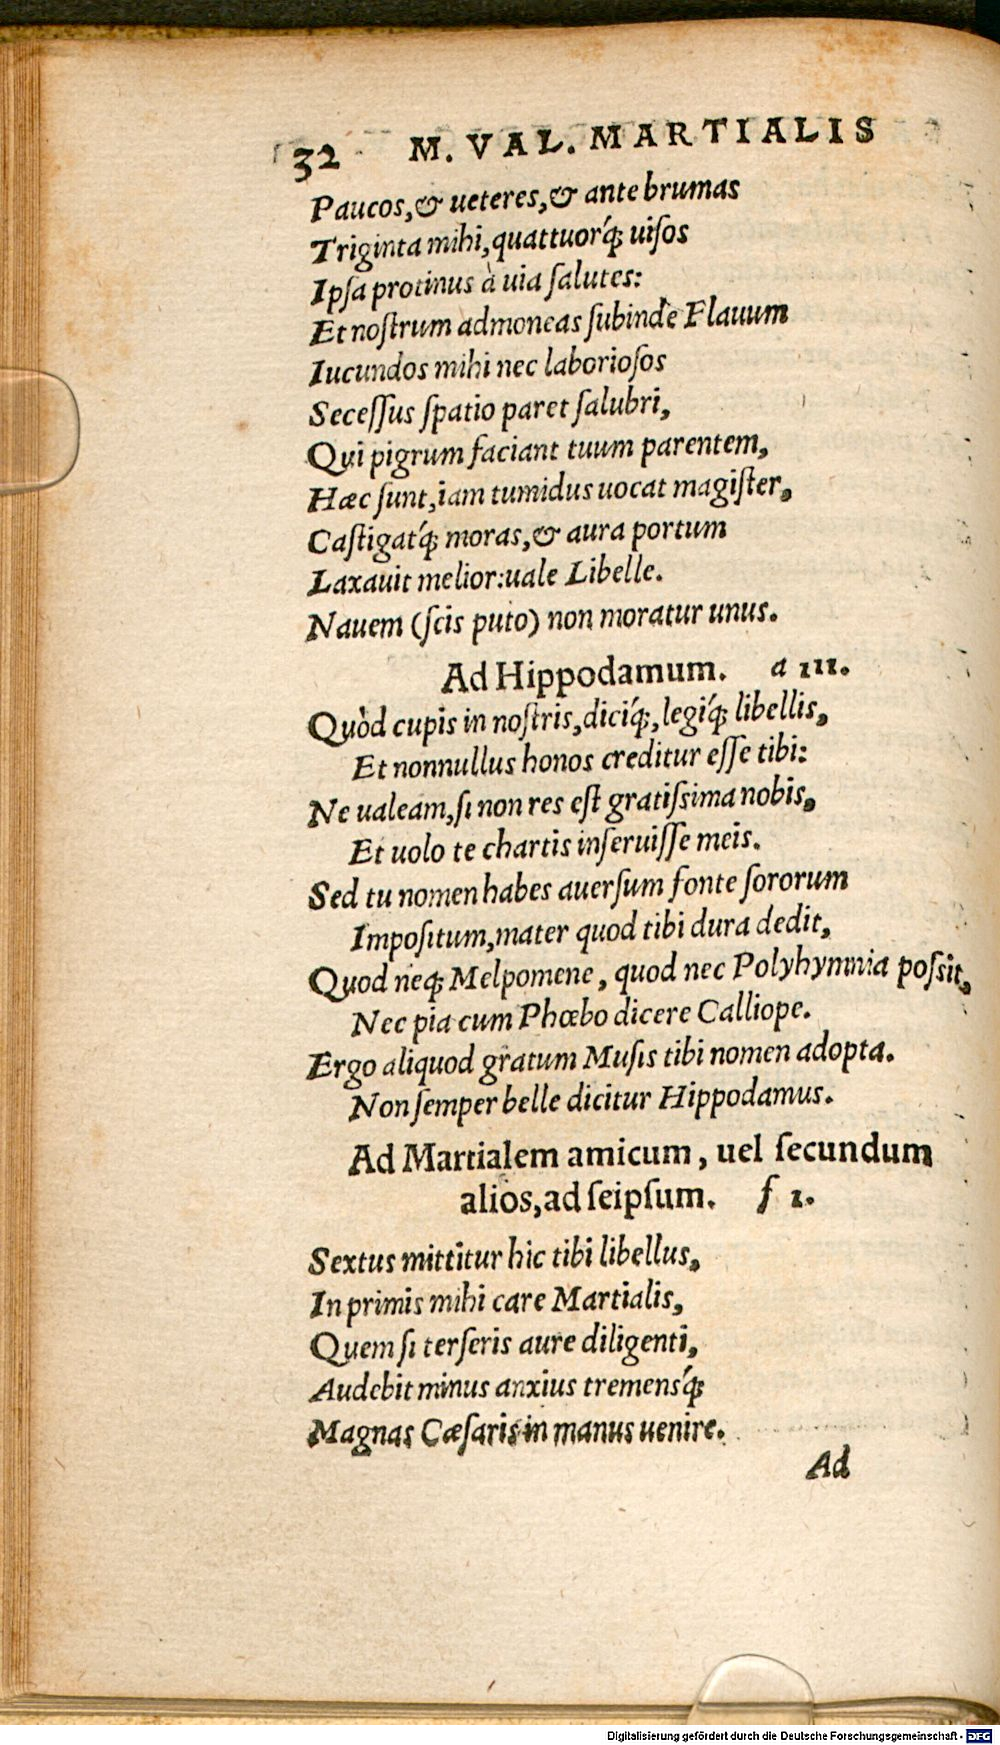 32 M. VAL. MARTIALIS
Paucos,& ueteres,& ante brumas
Triginta mihi,quattuorq́ꝫ uiſos
Ipſa protinus à uia ſalutes:
Et noſtrum admoneas ſubinde Flauum
Iucundos mihi nec laborioſos
Seceſſus ſpatio paret ſalubri,
Qui pigrum faciant tuum parentem,
Hæc ſunt,iam tumidus uocat magiſter,
Caſtigatq́ꝫ moras,& aura portum
Laxauit melior:uale Libelle.
Nauem (ſcis puto) non moratur unus.
Ad Hippodamum. a III.
Quòd cupis in noſtris,diciq́ꝫ,legiq́ꝫ libellis,
Et nonnullus honos creditur eſſe tibi:
Ne ualeam,ſi non res eſt gratiſsima nobis,
Et uolo te chartis inſeruiſſe meis.
Sed tu nomen habes auerſum fonte ſororum
Impoſitum,mater quod tibi dura dedit,
Quod neqꝫ Melpomene, quod nec Polyhymnia poſsit,
Nec pia cum Phœbo dicere Calliope.
Ergo aliquod gratum Muſis tibi nomen adopta.
Non ſemper belle dicitur Hippodamus.
Ad Martialem amicum, uel ſecundum
alios,ad ſeipſum. f 1.
Sextus mittitur hic tibi libellus,
In primis mihi care Martialis,
Quem ſi terſeris aure diligenti,
Audebit minus anxius tremensq́ꝫ
Magnas Cæſaris in manus uenire.
Ad
Digitalisierung gefördert durch die Deutsche Forschungsgemeinschaft - DFG